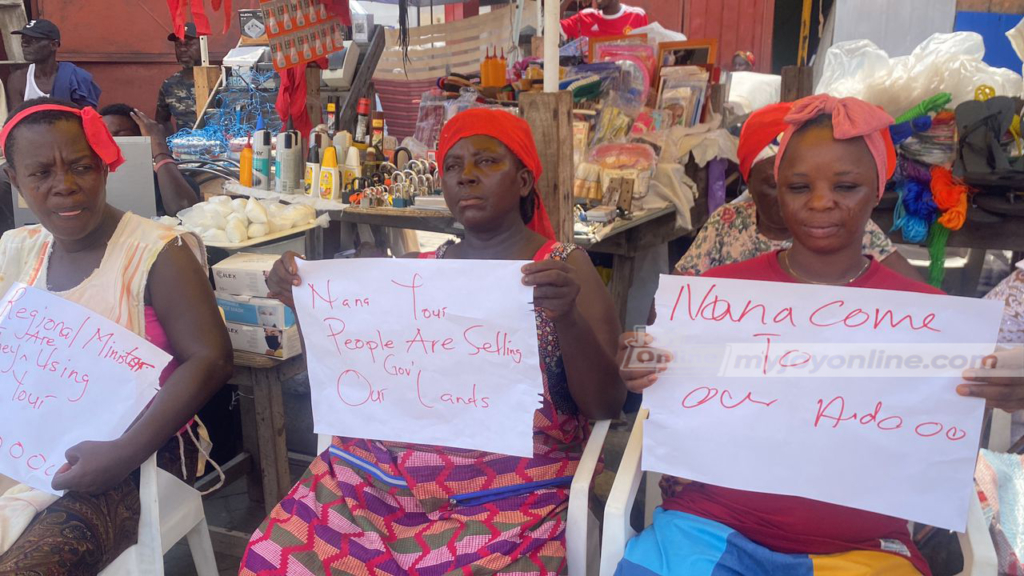 Regional Minister
Are
Using
Your
Nana Your
People Are Selling
Gov'
Our Lands
Nana come
To
our Aidooo
myjoyonline.com